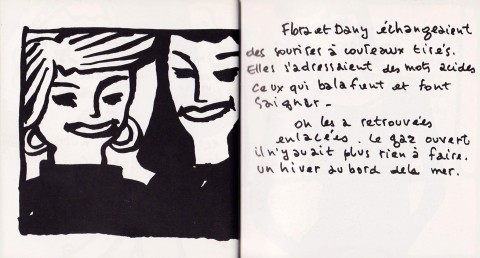 Flora et Dany échangeaient
des sourires à couteaux tirés.
Elles s'adressaient des mots acides
ceux qui balafrent et font
saigner -
on les a retrouvées
enlacées. Le gaz ouvert
il n'y avait plus rien à faire.
un hiver au bord de la mer.